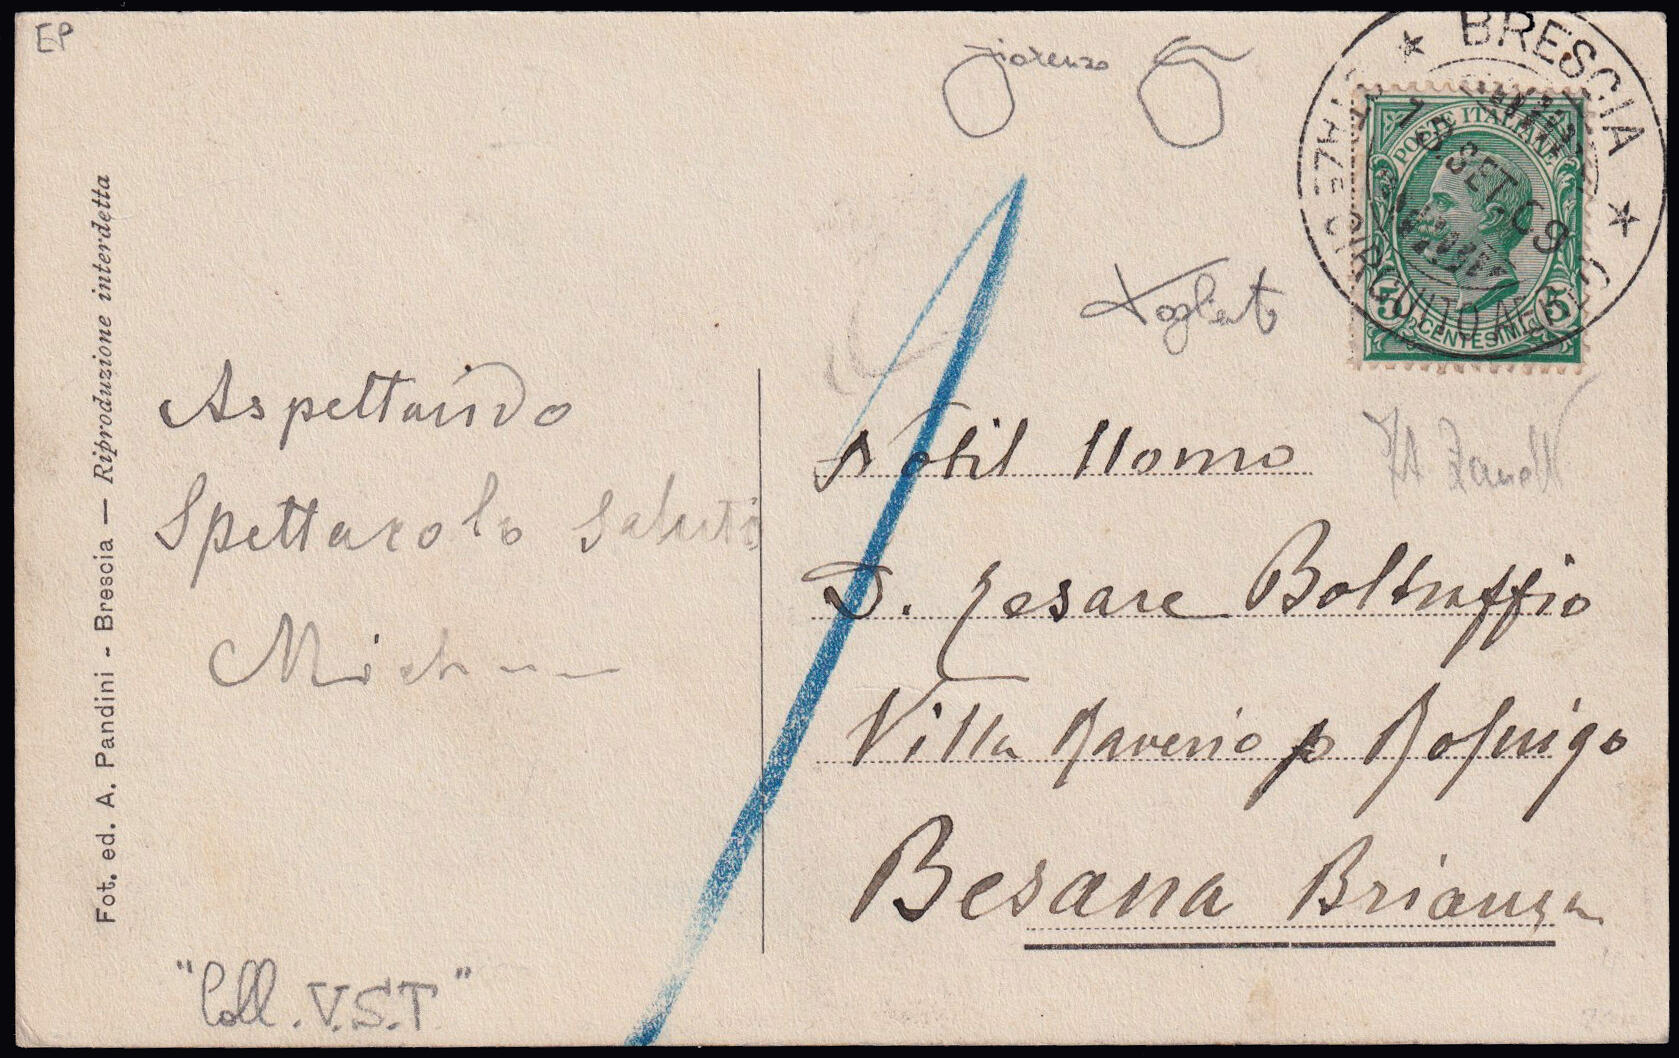 EP
Fot. ed. A. Pandini - Brescia — Riproduzione interdetta
Aspettando
Spettacolo saluti
"Coll. V.S.T"
BRESCIA
SET. 09
CIRCUITO AEREO
POSTE ITALIANE
5 CENTESIMI 5
Nobil Uomo
D. Cesare Boltraffio
Villa Raverio p
Besana Brianza